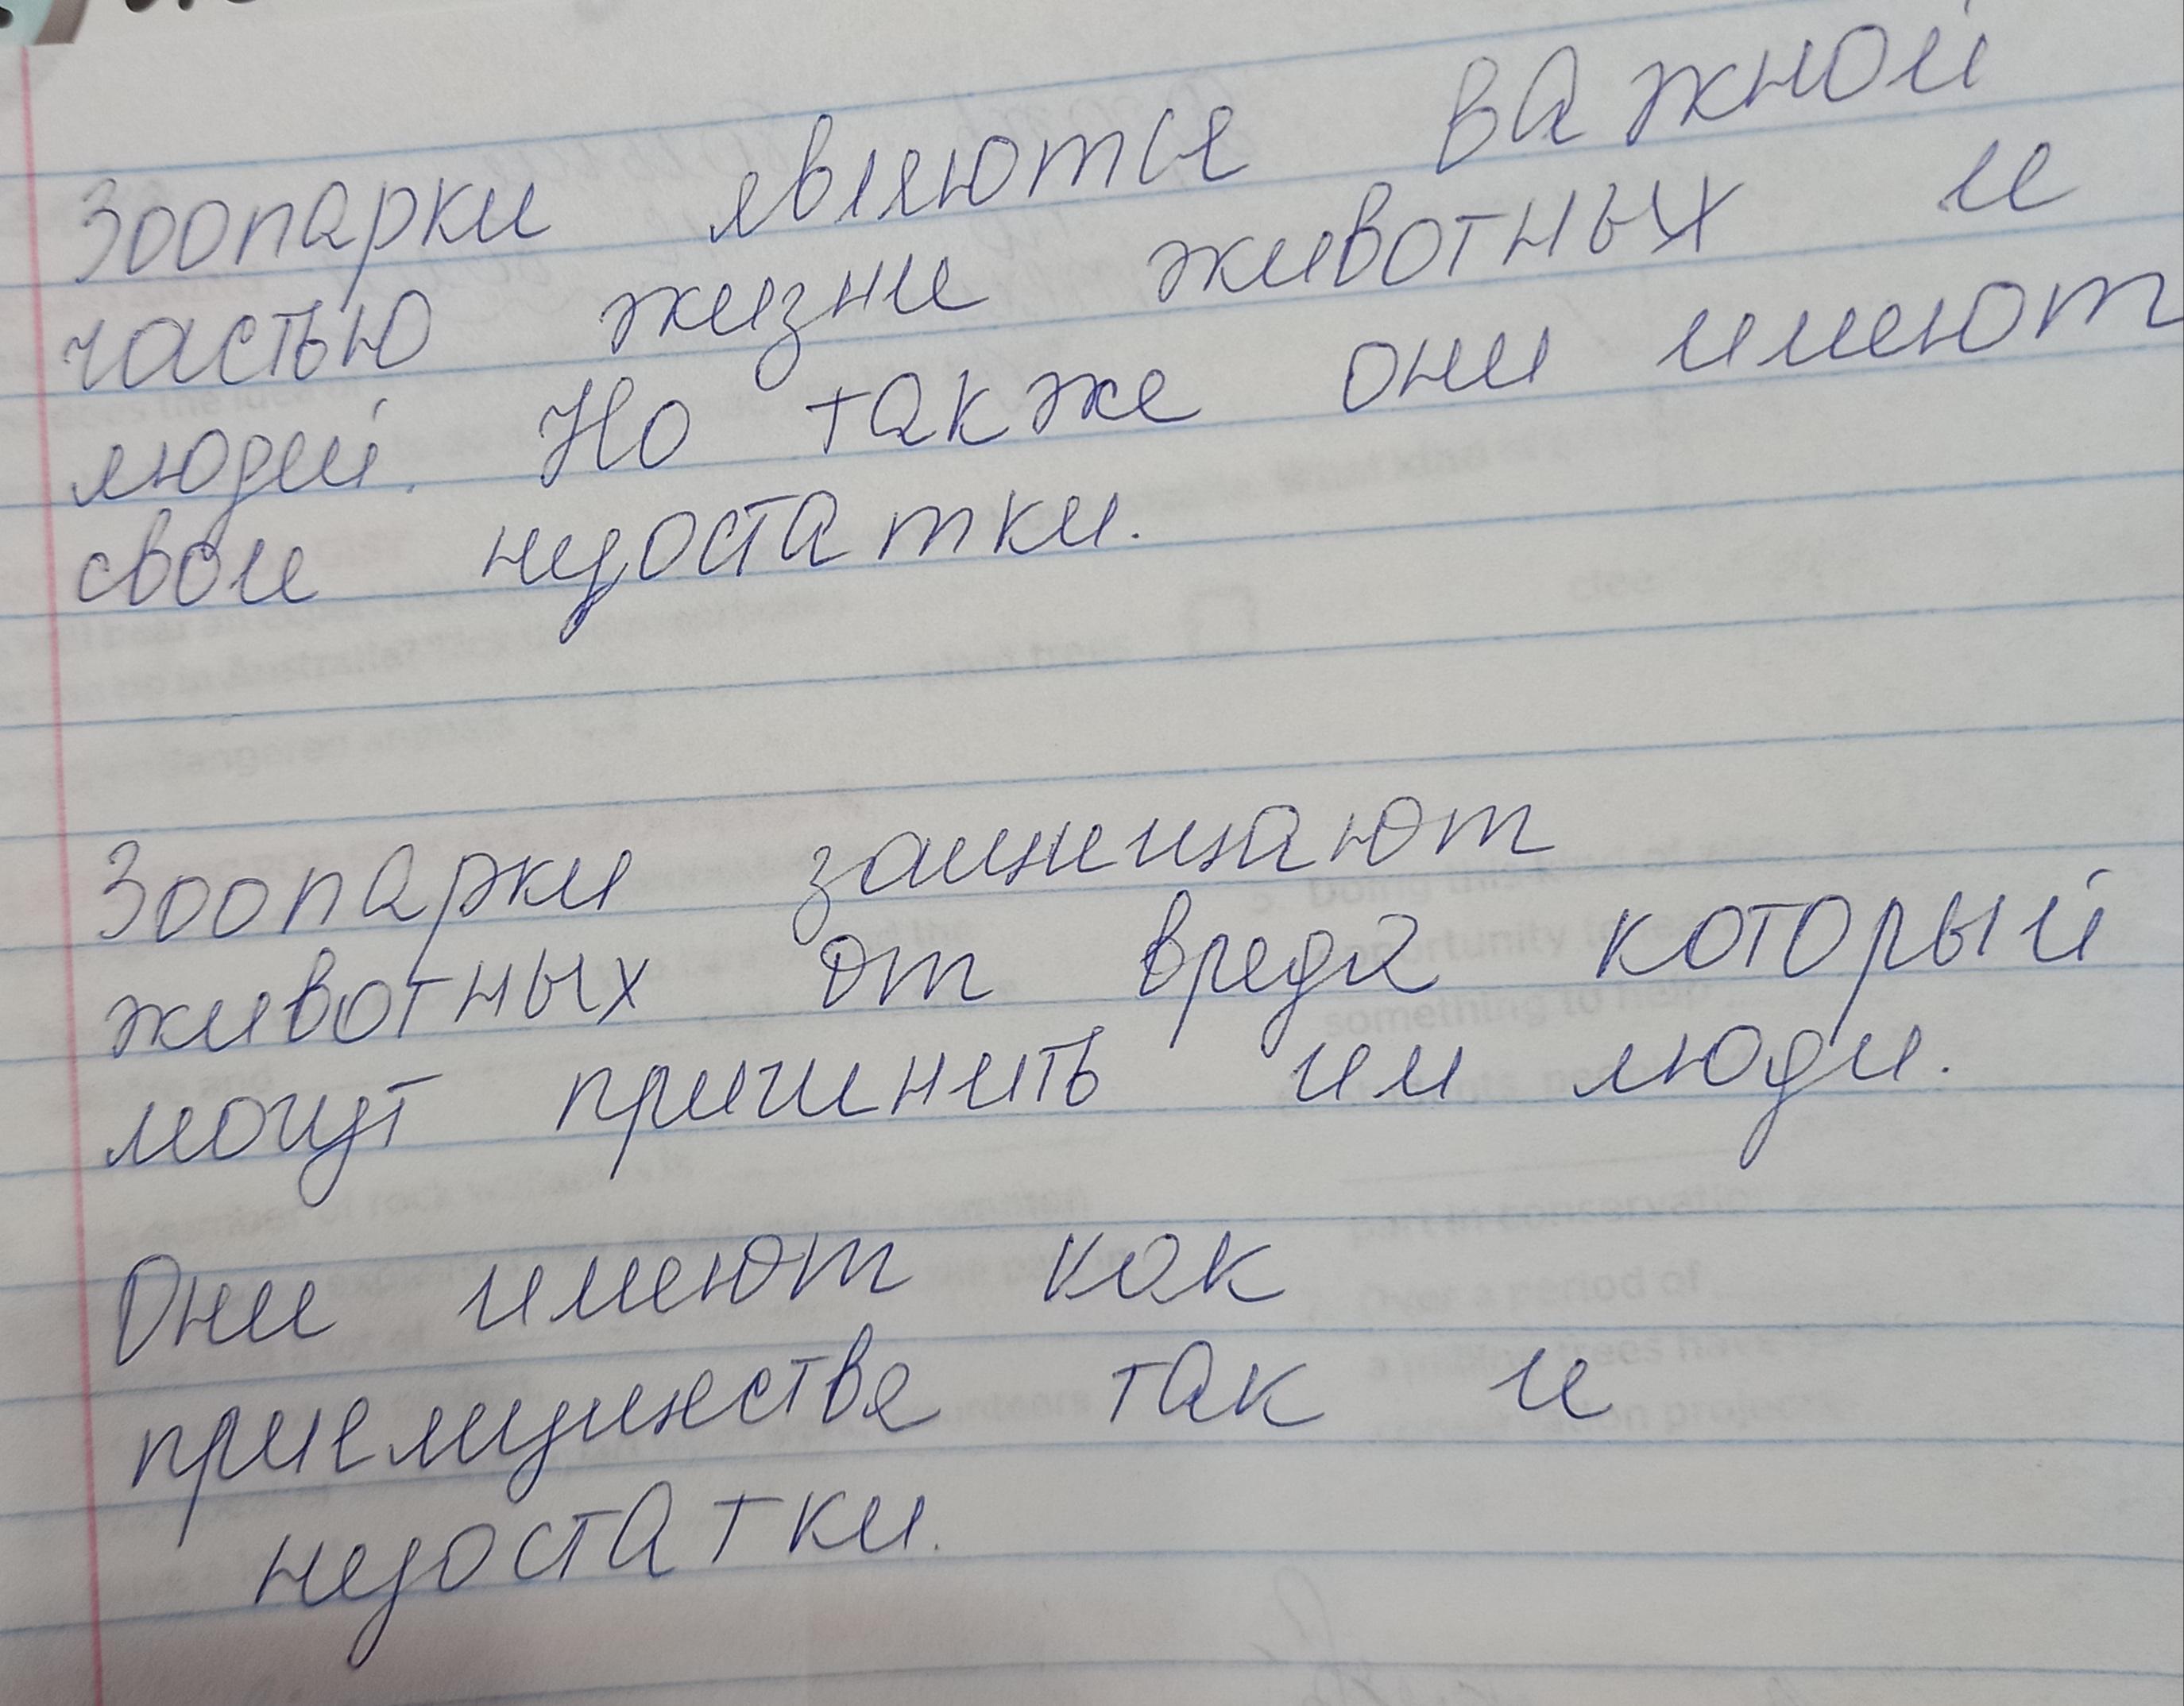 Зоопарки являются важной
частью жизни животных и
людей. Но также они имеют
свои недостатки.
Зоопарки защищают
животных от вреда который
могут причинить им люди.
Они имеют как
приемущества так и
недостатки.